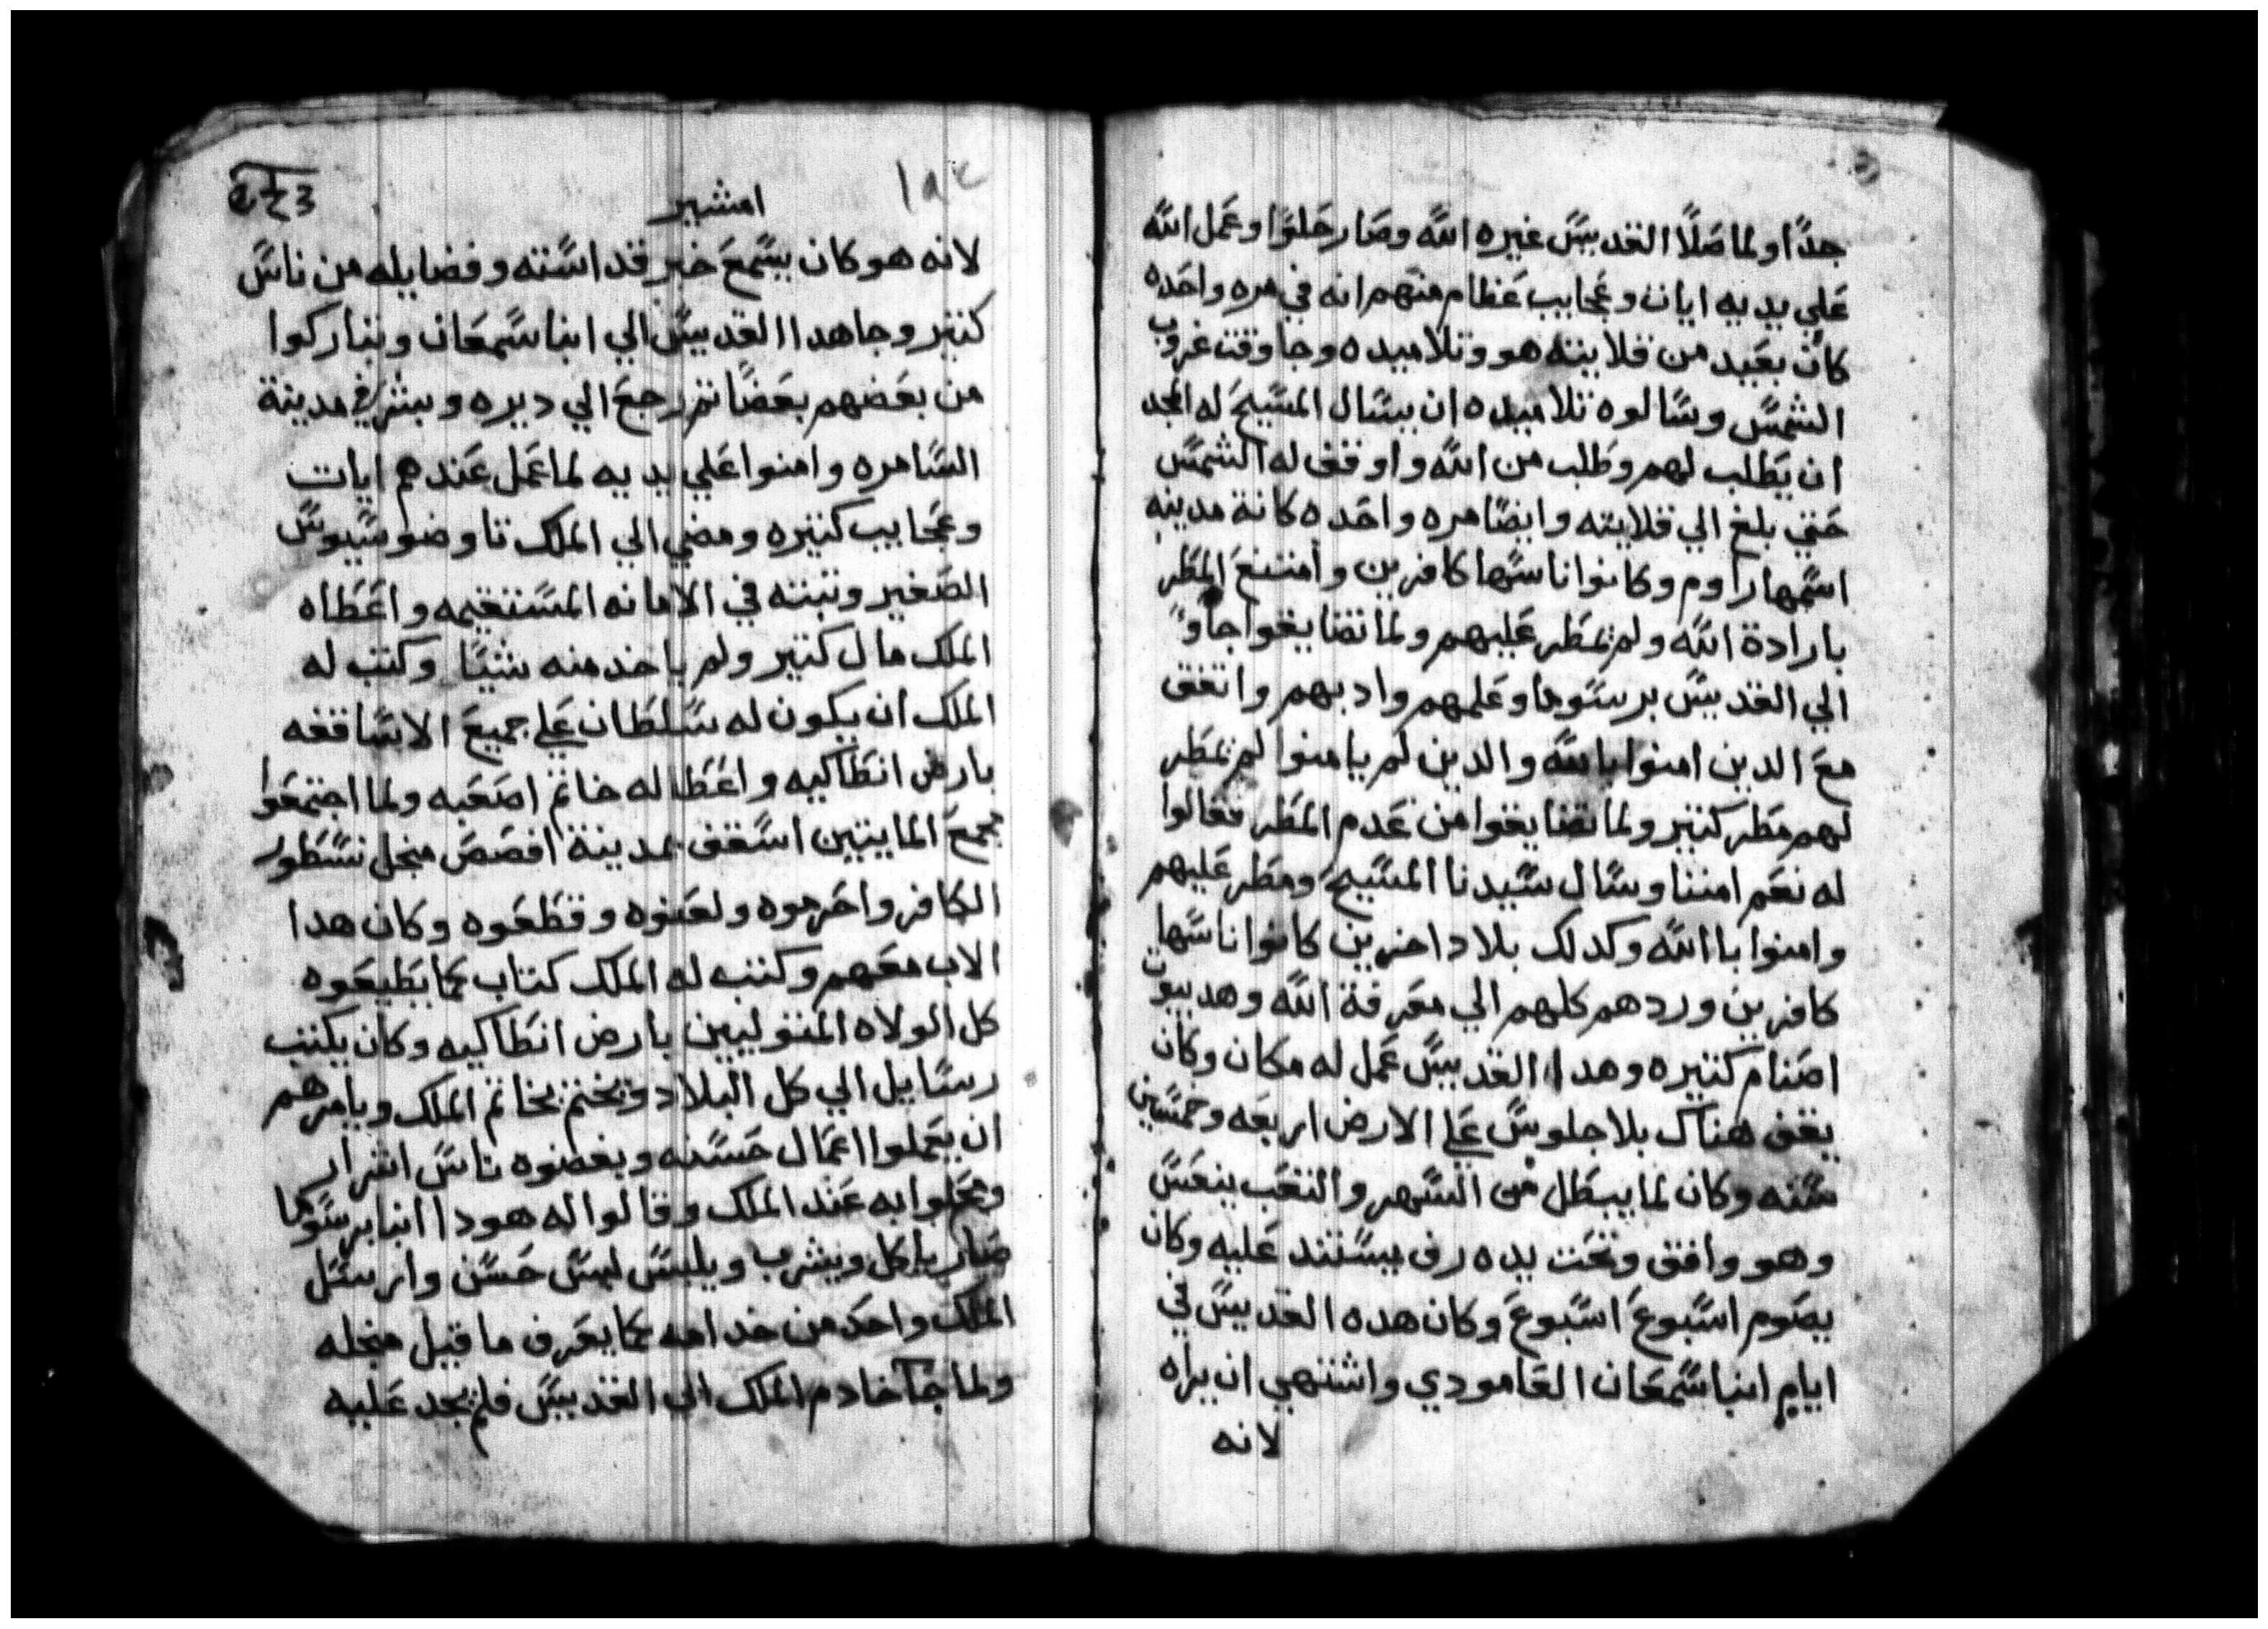 جدًا ولما صلا القديس غيره الله وصار حلوًا وعمل الله
علي يديه ايات وعجايب عظام منهم انه في مره واحده
كان بعيد من قلايته هو وتلاميده وجا وقت غروب
الشمس وسالوه تلاميده ان يسال المسيح له المجد
ان يطلب لهم وطلب من الله واوقف له الشمس
حتي بلغ الي قلايته وايضًا مره واحده كانة مدينه
اسمها راوم وكانوا ناسها كافرين وامتنع المطر
بارادة الله ولم تمطر عليهم ولما تضايقوا جاوا
الي القديس برسوما وعلمهم وادبهم واتفق
مع الدين امنوا بالله والدين لم يامنوا لم تمطر
لهم مطر كتير ولما تضايقوا من عدم المطر فقالوا
له نعم امننا وسال سيدنا المسيح ومطر عليهم
وامنوا باالله وكدلك بلاد اخرين كانوا ناسها
كافرين وردهم كلهم الي معرفة الله وهد بيوت
اصنام كتيره وهدا القديس عمل له مكان وكان
يقف هناك بلا جلوس علي الارض اربعه وخمسين
سنه وكان لما يبطل من السهر والتعب ينعس
وهو واقف وتحت يده رف يستند عليه وكان
يصوم اسبوع اسبوع وكان هده القديس في
ايام انبا سمعان العامودي واشتهي ان يراه
لانه
امشير
لانه هو كان يسمع خبر قداسته وفضايله من ناس
كتير وجا هدا القديس الي انبا سمعان وتباركوا
من بعضهم بعضًا تم رجع الي ديره وبشر في مدينة
السامره وامنوا علي يديه لما عمل عندهم ايات
وعجايب كتيره ومضي الي الملك تاوضوسيوس
الصغير وتبته في الامانه المستقيمه واعطاه
الملك مال كتير ولم ياخد منه شيئًا وكتب له
الملك ان يكون له سلطان علي جميع الاساقفه
بارض انطاكيه واعطا له خاتم اصعبه ولما اجتمعوا
مجمع المايتين اسقف بمدينة افصص منجل نسطور
الكافر واحرموه ولعنوه وقطعوه وكان هدا
الاب معهم وكتب له الملك كتاب كما يطيعوه
كل الولاه المتوليين بارض انطاكيه وكان يكتب
رسايل الي كل البلاد ويختم بخاتم الملك ويامرهم
ان يعملوا اعمال حسنه وبغضوه ناس اشرار
وعملوا به عند الملك وقالوا له هودا انبا برسوما
صار ياكل ويشرب ويلبس لبس حسن وارسل
الملك واحد من خدامه كما يعرف ما قيل منجله
ولما جا خادم الملك الي القديس فلم يجد عليه